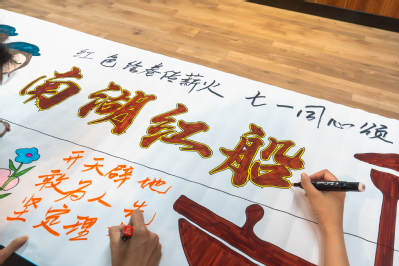 红色绘卷传薪火 七一同心颂
南湖红船
开天辟地
敢为人先
坚定理